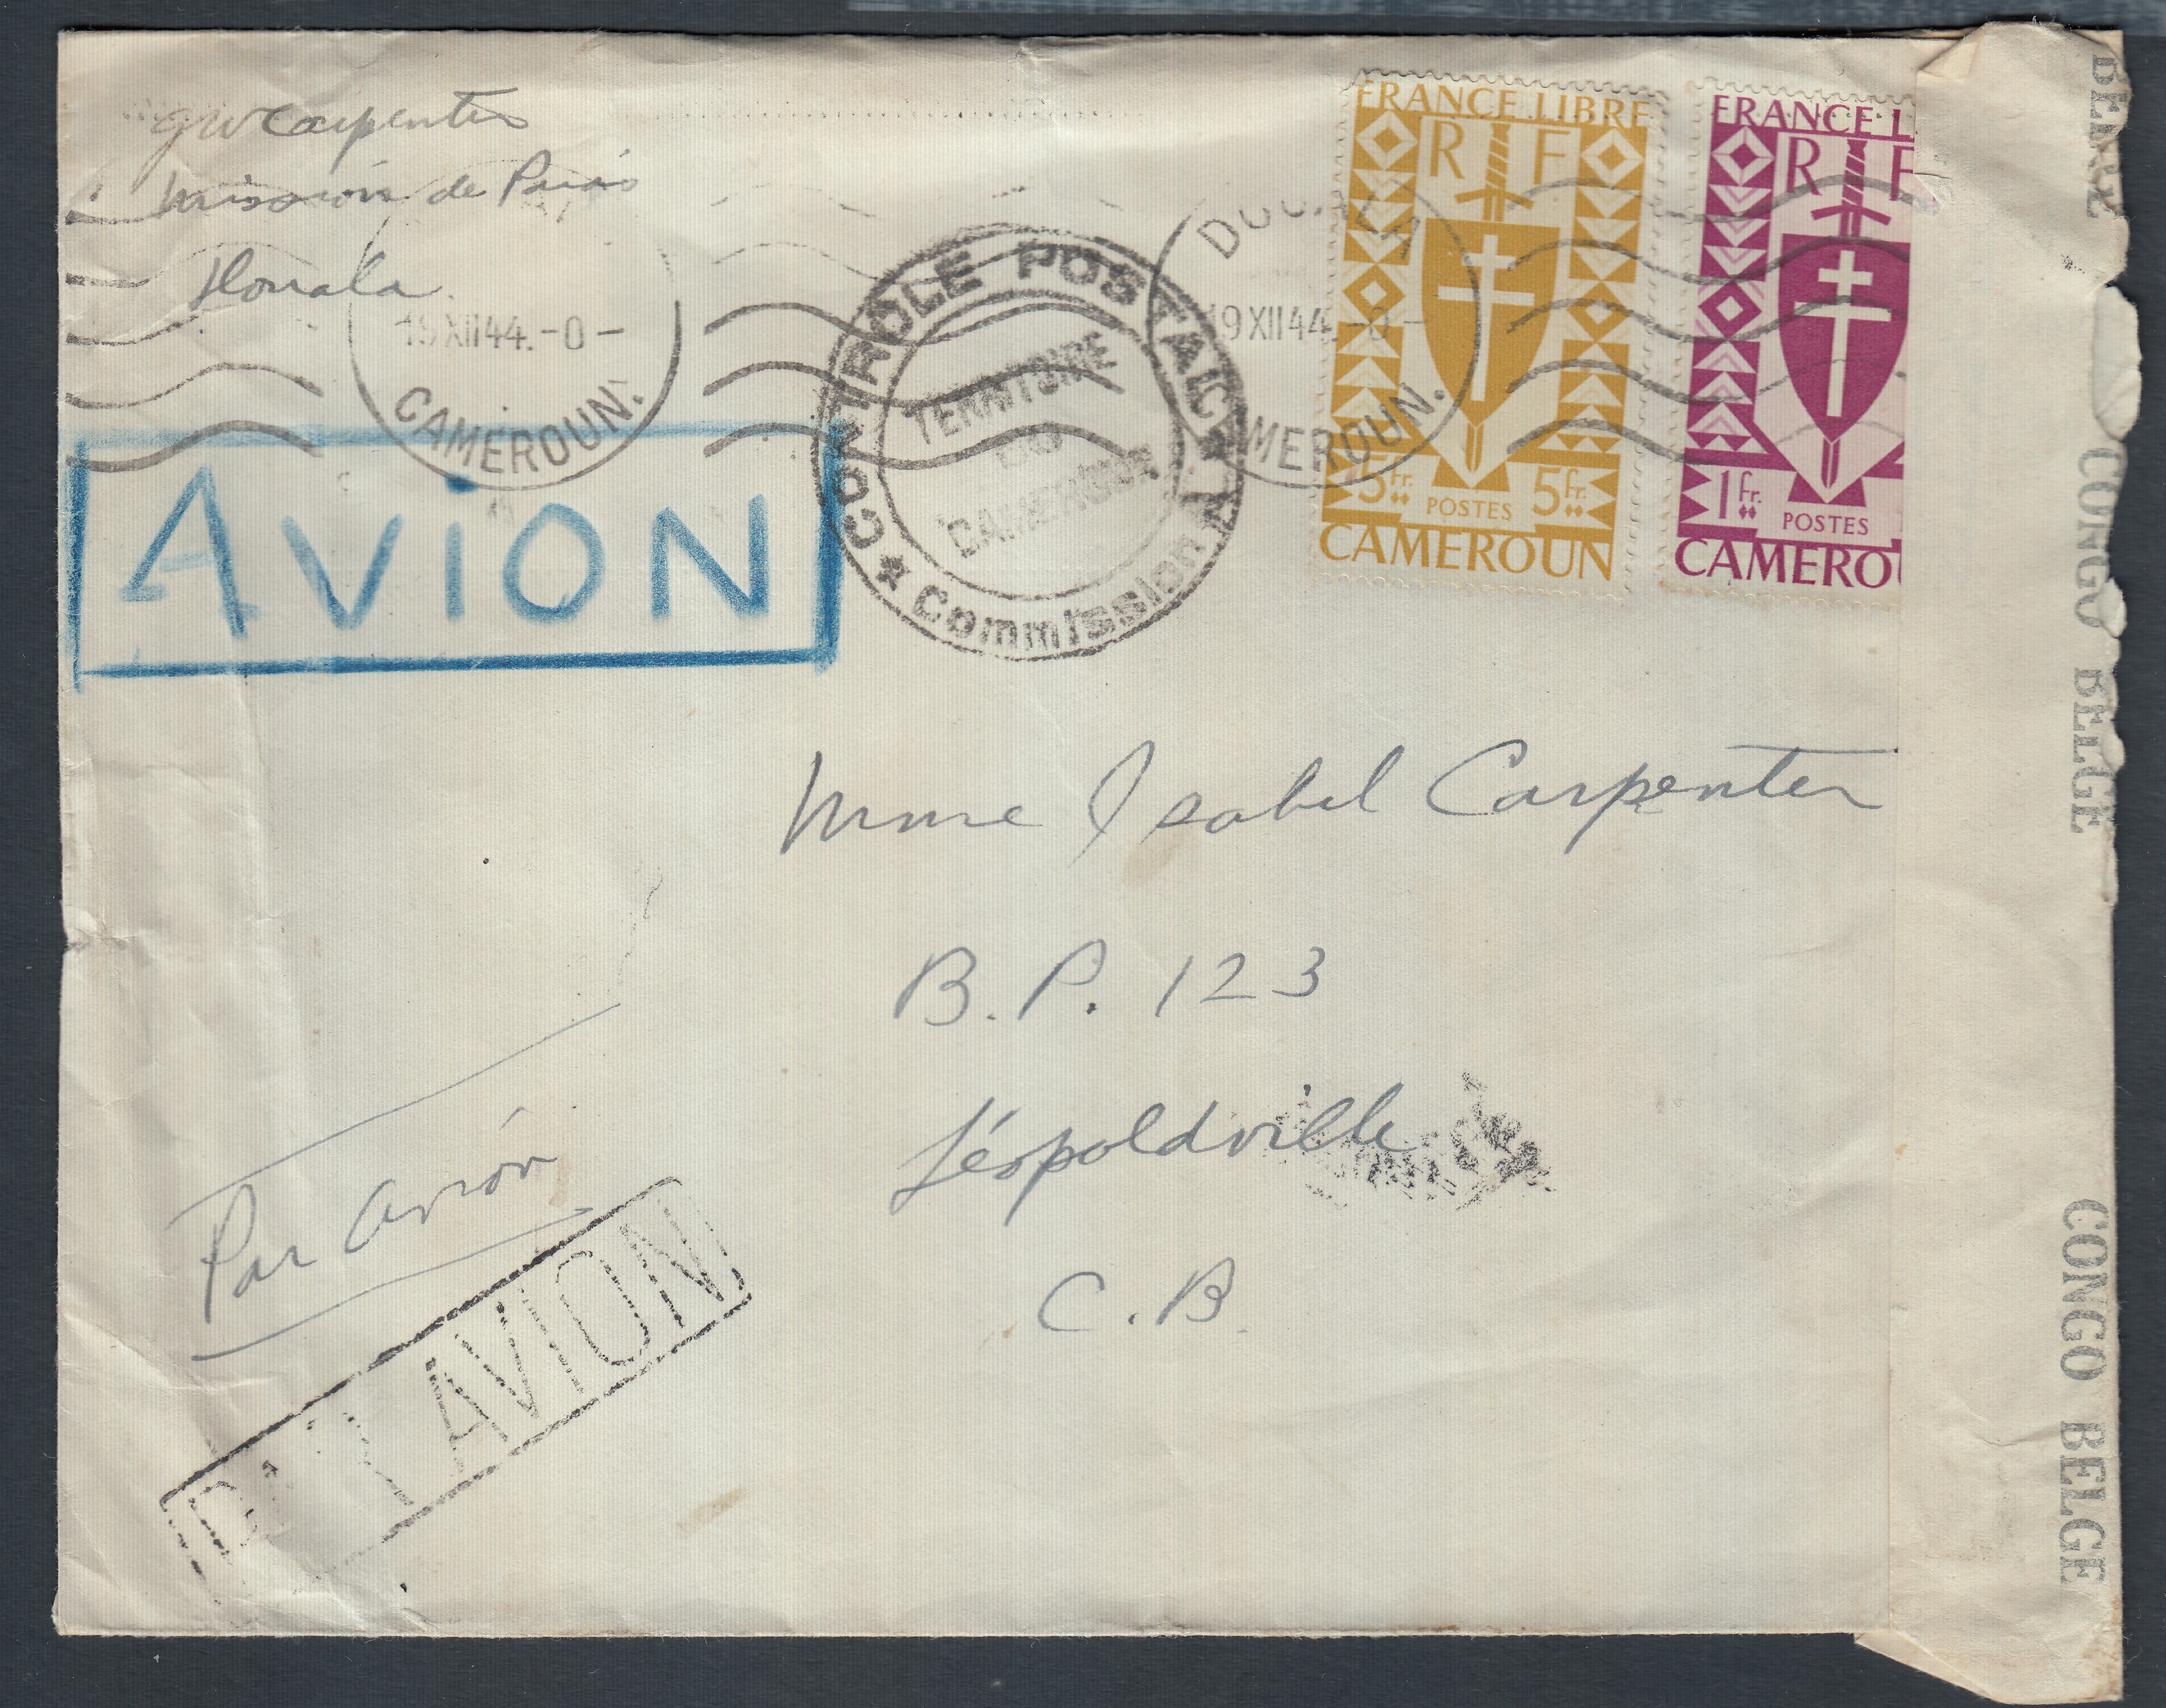 GW Carpenter
Mission de Paris
Douala
19 XII 44.-0-
CAMEROUN.
AVION
CONTROLE POSTAL
TERRITOIRE
DU
CAMEROUN
Commission A
DOUALA
19 XII 44.-0-
CAMEROUN.
FRANCE LIBRE
R F
5 Fr. POSTES 5 Fr.
CAMEROUN
FRANCE L
R F
1 Fr. POSTES
CAMEROU
Mme Isabel Carpenter
B.P. 123
Léopoldville
C.B.
Par avion
PAR AVION
BELGE
CONGO BELGE
CONGO BELGE